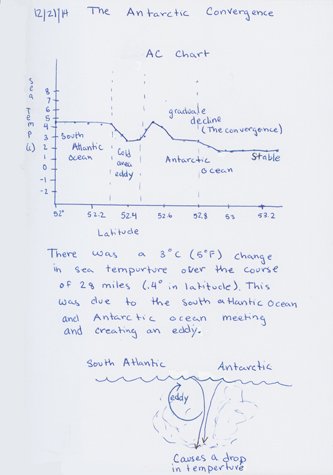 12/21/14 The Antarctic Convergence
AC Chart
Sea Temp (c)
8
7
6
5
4
3
2
1
0
-1
-2
South Atlantic ocean
Cold area eddy
graduale decline (The convergence)
Antarctic ocean
Stable
52° 52.2 52.4 52.6 52.8 53 53.2
Latitude
There was a 3°C (5°F) change
in sea tempurture over the course
of 28 miles (.4° in latitude). This
was due to the South atlantic Ocean
and Antarctic ocean meeting
and creating an eddy.
South Atlantic Antarctic
eddy
Causes a drop
in temperture